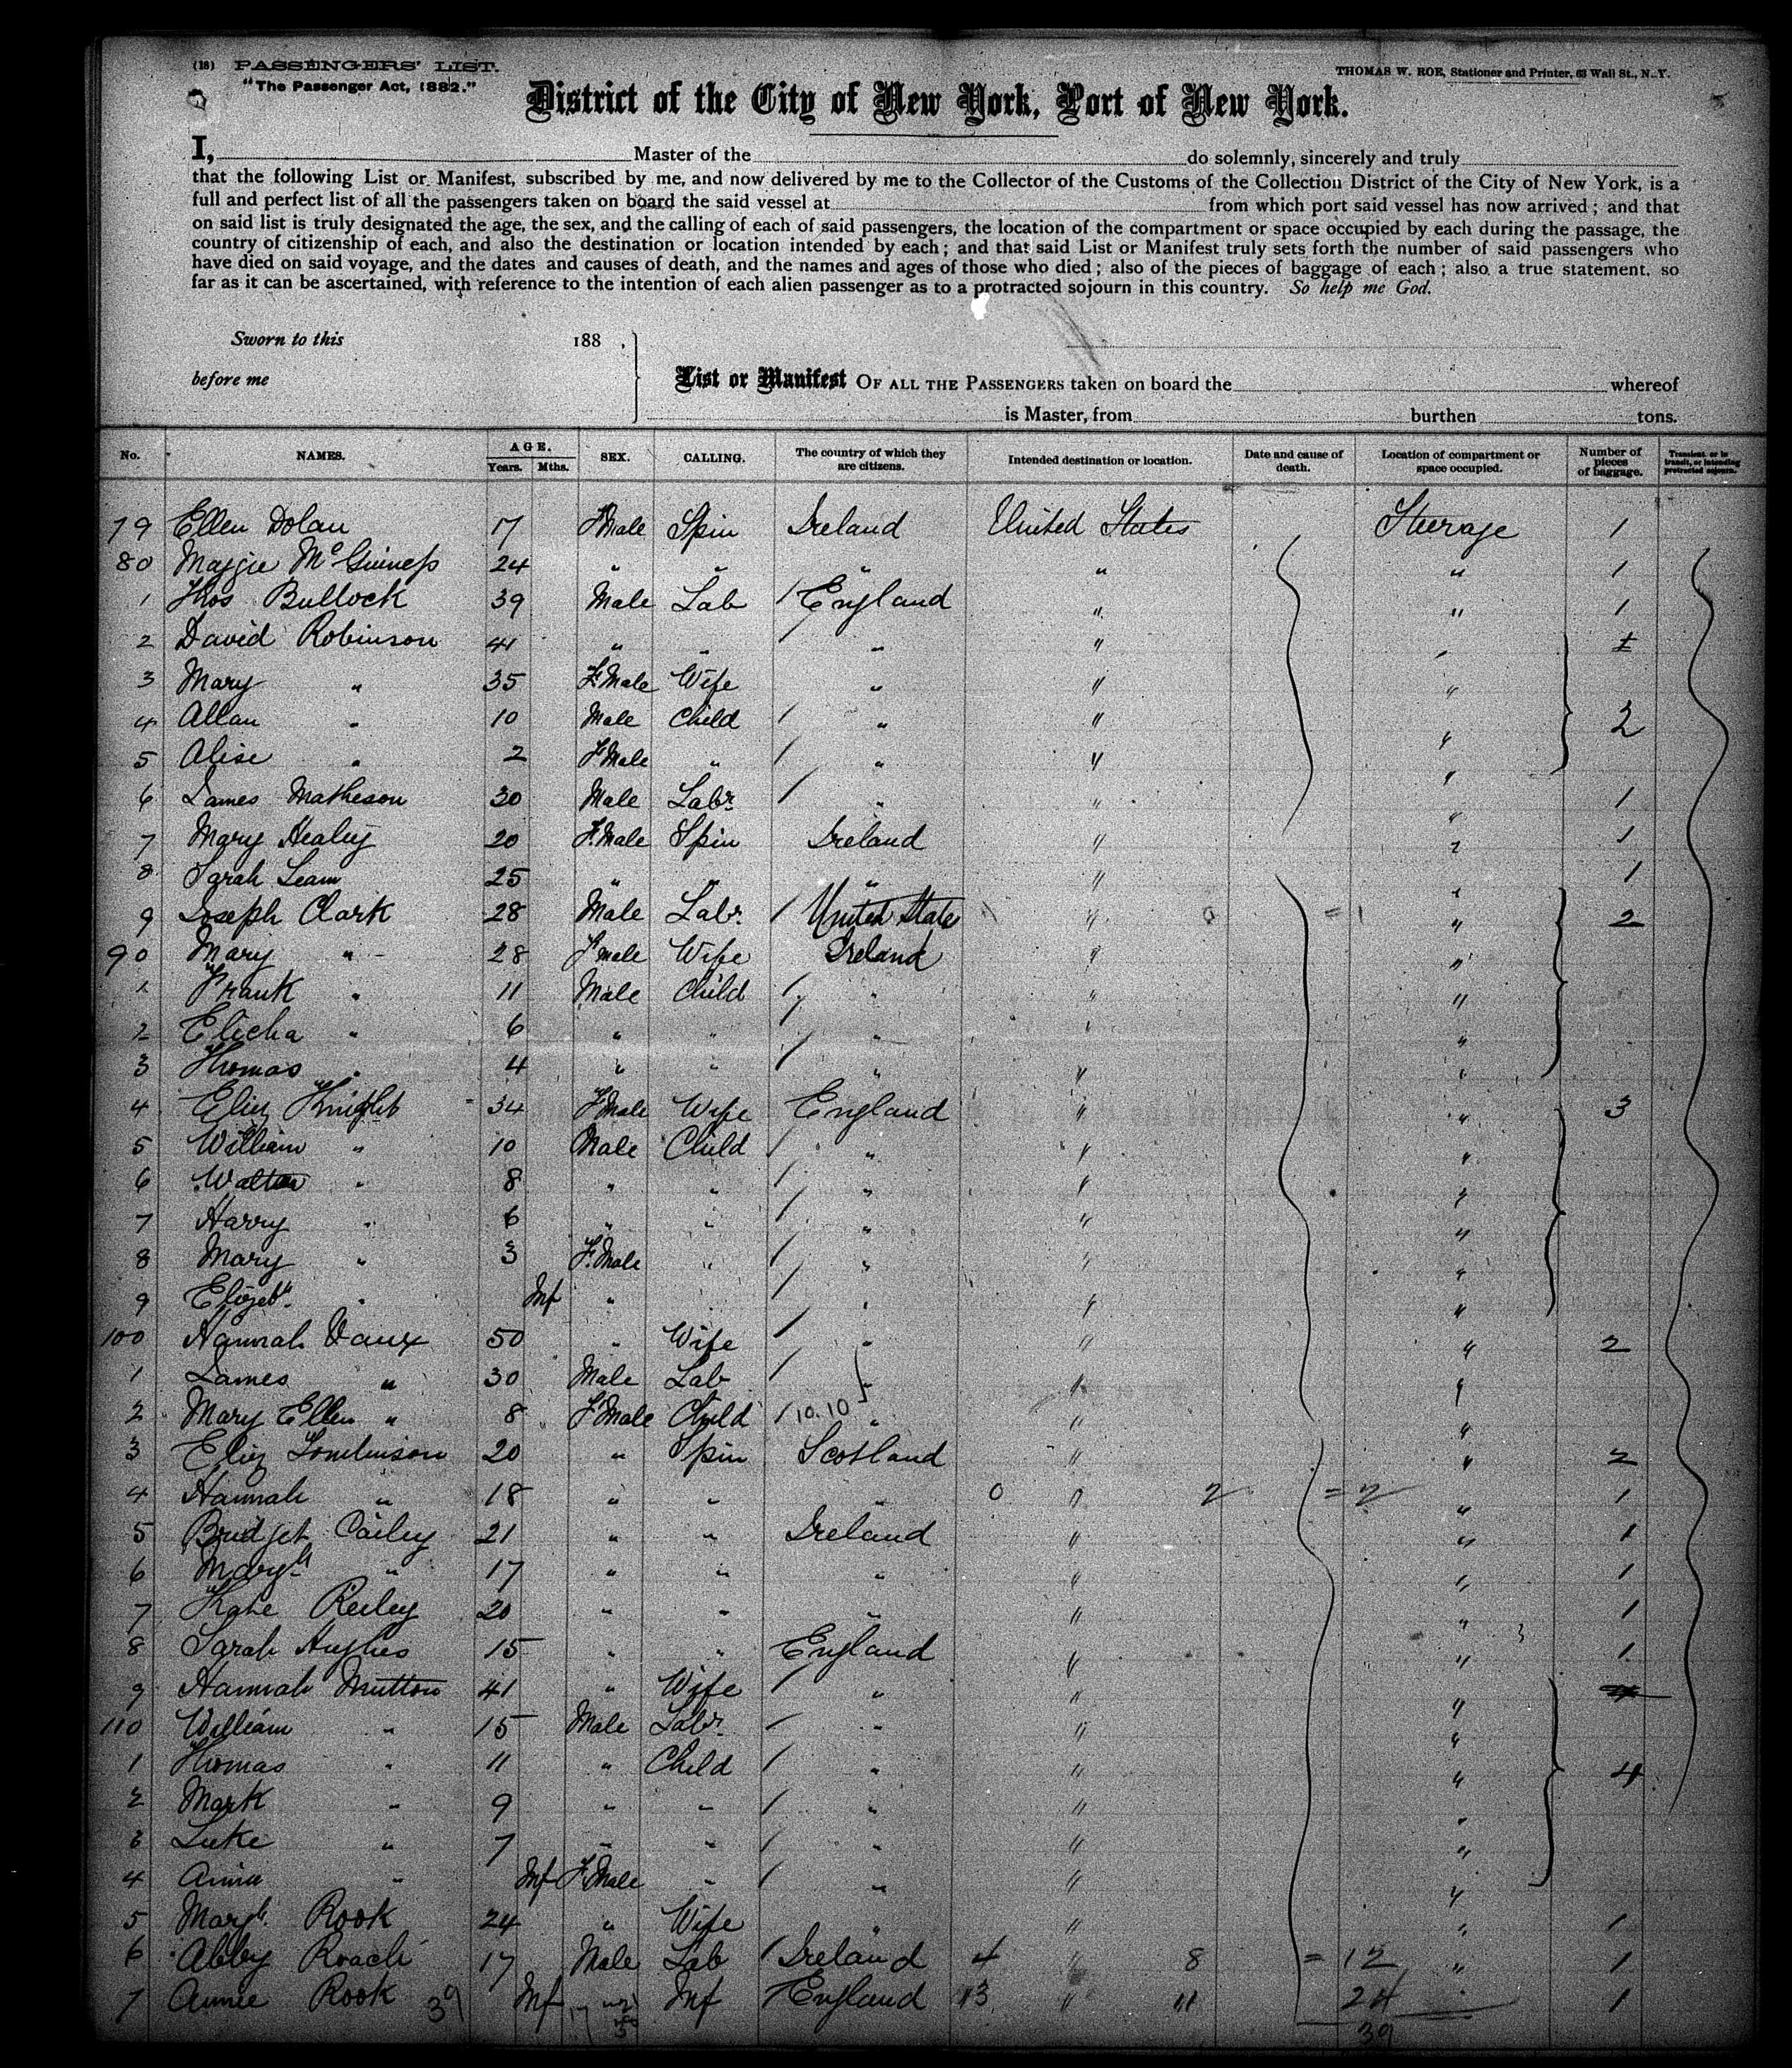 (18) PASSENGERS' LIST.
THOMAS W. ROE, Stationer and Printer, 63 Wall St., N. Y.
"The Passenger Act, 1882."
District of the City of New York, Port of New York.
I, Master of the do solemnly, sincerely and truly
that the following List or Manifest, subscribed by me, and now delivered by me to the Collector of the Customs of the Collection District of the City of New York, is a
full and perfect list of all the passengers taken on board the said vessel at from which port said vessel has now arrived; and that
on said list is truly designated the age, the sex, and the calling of each of said passengers, the location of the compartment or space occupied by each during the passage, the
country of citizenship of each, and also the destination or location intended by each; and that said List or Manifest truly sets forth the number of said passengers who
have died on said voyage, and the dates and causes of death, and the names and ages of those who died; also of the pieces of baggage of each; also a true statement, so
far as it can be ascertained, with reference to the intention of each alien passenger as to a protracted sojourn in this country. So help me God.
Sworn to this 188 ,
before me
List or Manifest OF ALL THE PASSENGERS taken on board the whereof
is Master, from burthen tons.
No. NAMES. AGE. Years. Mths. SEX. CALLING. The country of which they are citizens. Intended destination or location. Date and cause of death. Location of compartment or space occupied. Number of pieces of baggage. Transient or in transit, or intending protracted sojourn.
79 Ellen Dolan 17 F Male Spin Ireland United States Steerage 1
80 Maggie McGuiness 24 " " " " " 1
1 Thos Bullock 39 Male Lab England " " 1
2 David Robinson 41 " " " " "
3 Mary " 35 F. Male Wife " " "
4 Allan " 10 Male Child " " " 2
5 Alise " 2 F Male " " " "
6 James Matheson 30 Male Labr " " " 1
7 Mary Healey 20 F. Male Spin Ireland " " 1
8 Sarah Leam 25 " " " " " 1
9 Joseph Clark 28 Male Labr. United States " " 2
90 Mary " 28 F male Wife Ireland " "
1 Frank " 11 Male Child " " "
2 Elicha " 6 " " " " "
3 Thomas " 4 " " " " "
4 Eliz Knight 34 F Male Wife England " " 3
5 William " 10 Male Child " " "
6 Walter " 8 " " " " "
7 Harry " 6 " " " " "
8 Mary " 3 F. Male " " " "
9 Elizabth " Inf " " " " "
100 Hannah Vaux 50 " Wife " " " 2
1 James " 30 Male Lab " " "
2 Mary Ellen " 8 F Male Child 10.10 " " "
3 Eliz Tomlinson 20 " Spin Scotland " " 2
4 Hannah " 18 " " " 0 " 2 = 2 " 1
5 Bridget Cailey 21 " " Ireland " " 1
6 Margt " 17 " " " " " 1
7 Kate Reiley 20 " " " " " 1
8 Sarah Hughes 15 " " England " " 1
9 Hannah Mutton 41 " Wife " " "
110 William " 15 Male Labr. " " "
1 Thomas " 11 " Child " " " 4
2 Mark " 9 " " " " "
3 Luke " 7 " " " " "
4 Anna " Inf F. Male " " " "
5 Margt. Rook 24 " Wife " " " 1
6 Abby Roach 17 Male Lab Ireland 4 " 8 = 12 " 1
7 Annie Rook 39 Inf " Inf England 13 " 11 24 " 1
39